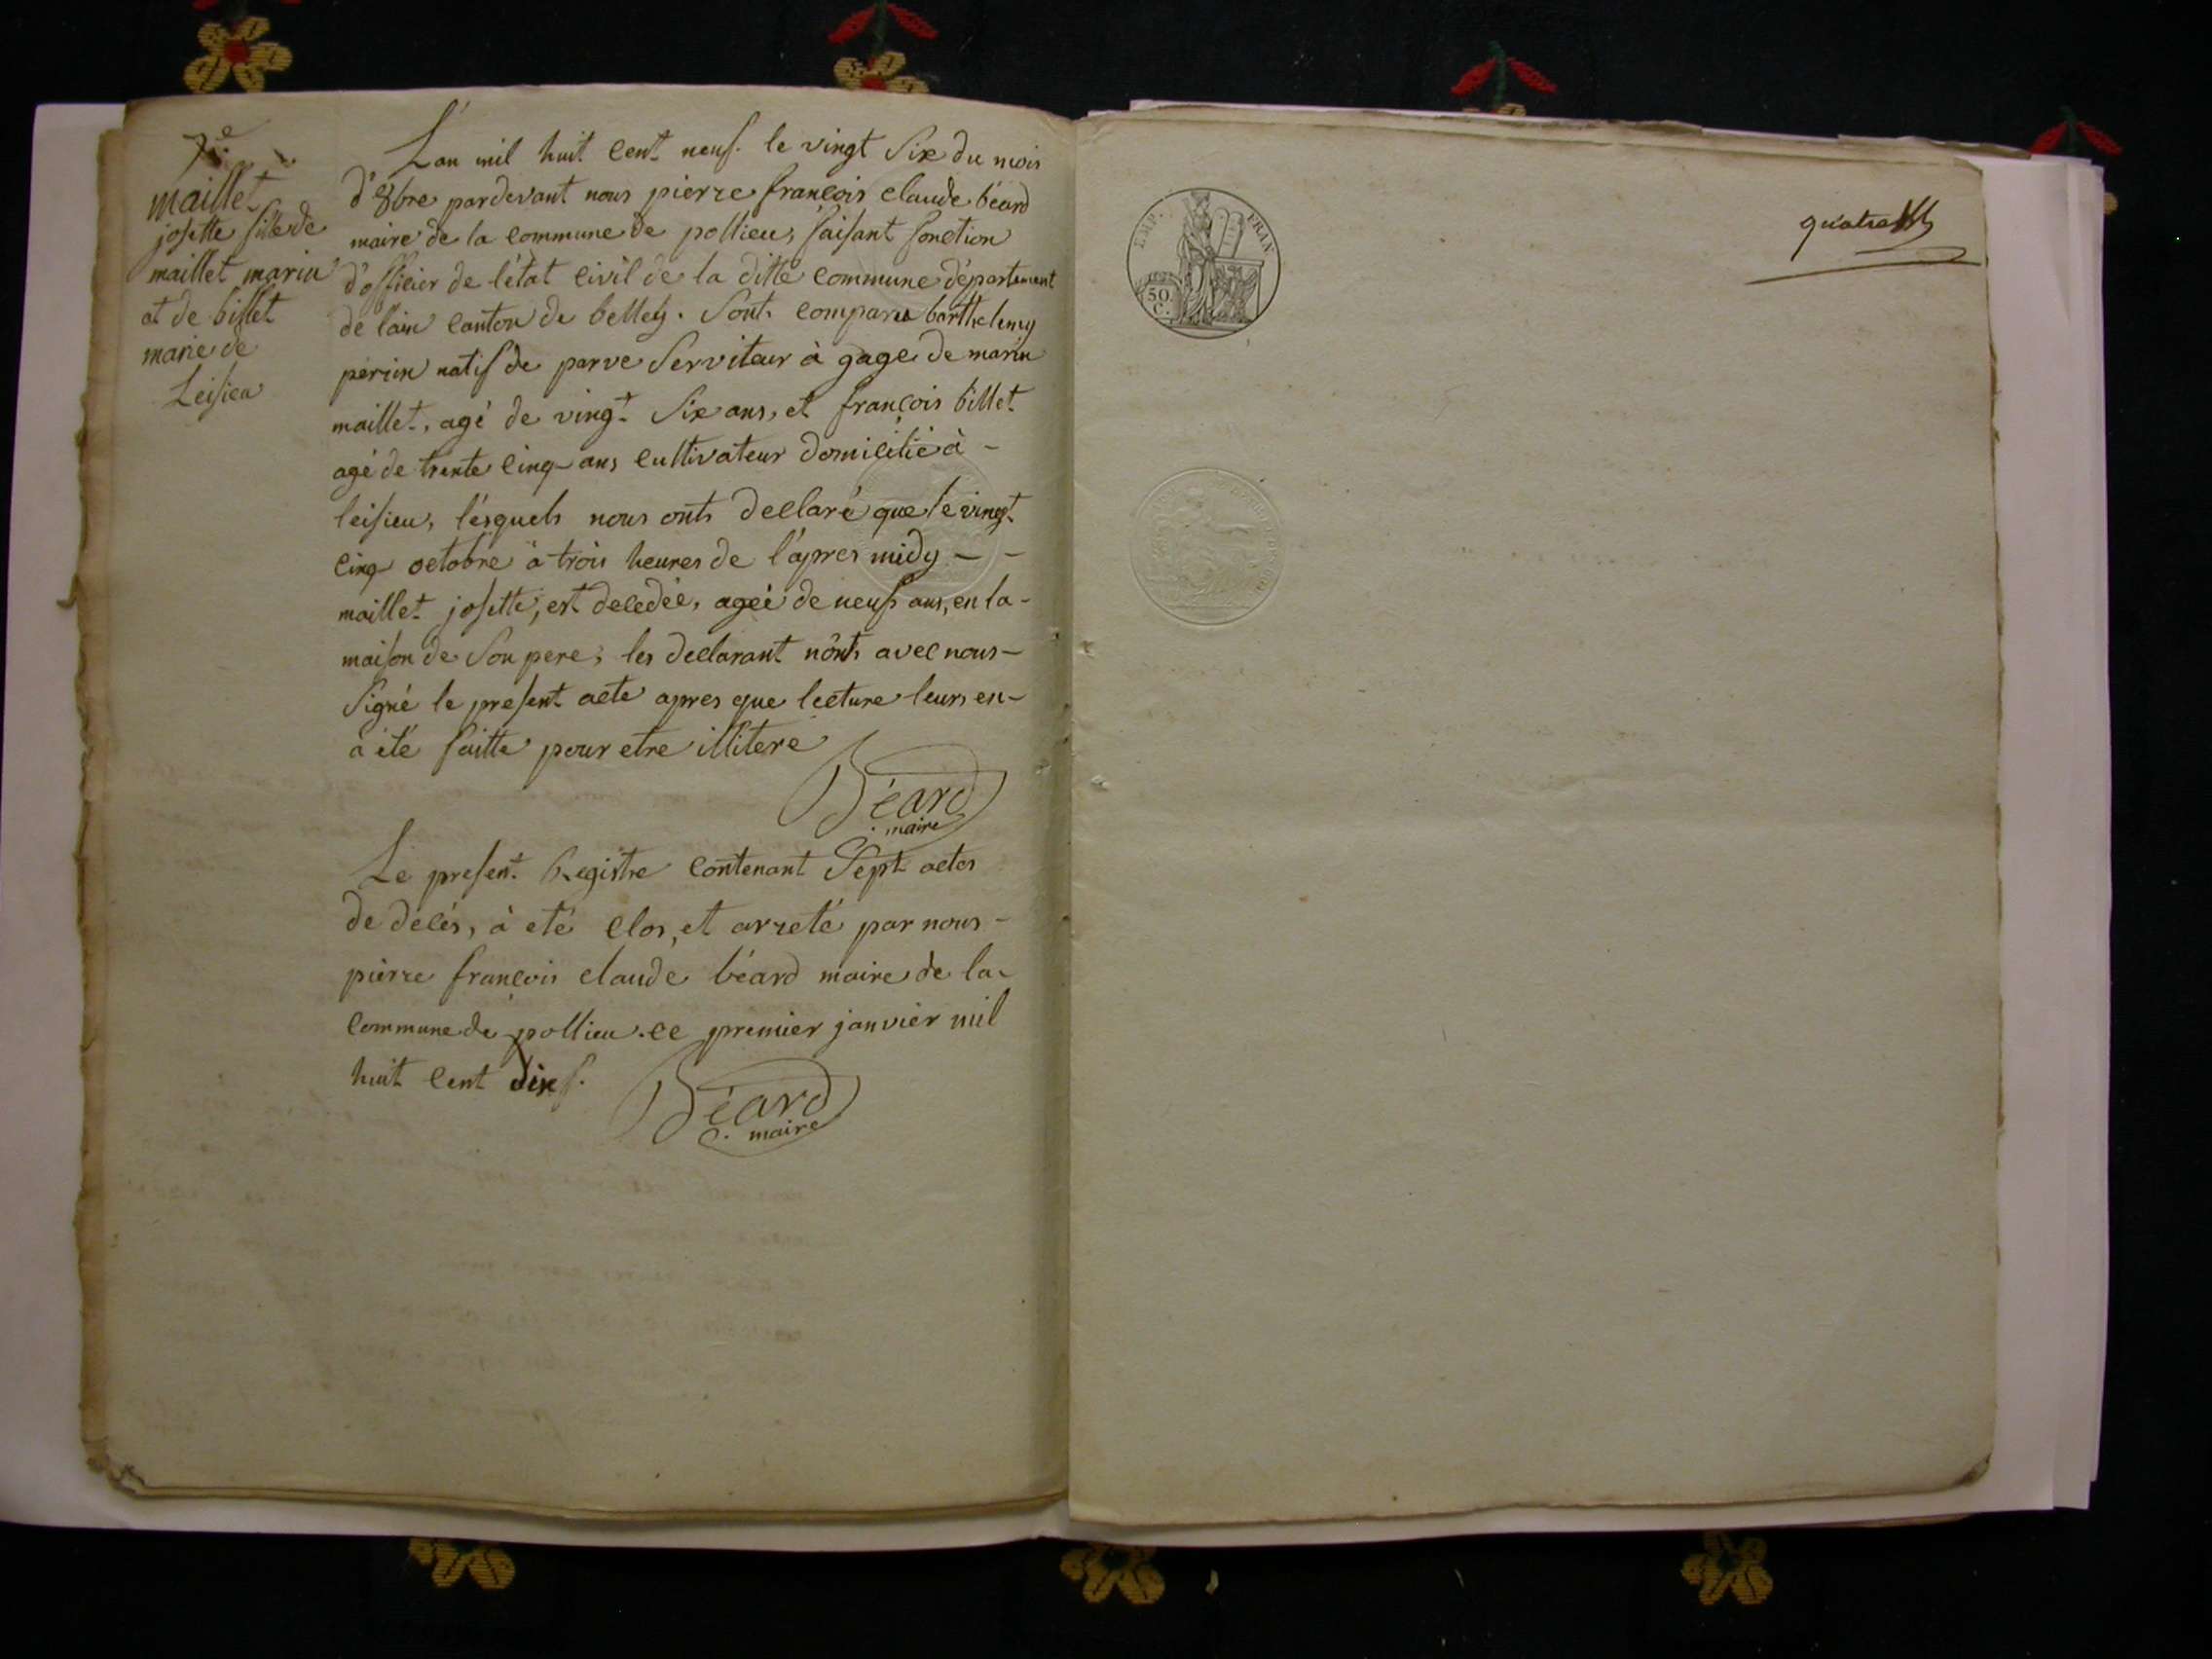 7e
maillet
josette fille de
maillet marin
et de billet
marie de
Leisieu
L'an mil huit cent neuf. le vingt six du mois
d'8bre pardevant nous pierre françois claude béard
maire de la commune de pollieu, faisant fonction
d'officier de l'état civil de la ditte commune département
de l'ain canton de belley. sont comparu barthelemy
perrin natif de parve serviteur à gage de marin
maillet, agé de vingt six ans, et françois billet
agé de trente cinq ans cultivateur domicilié à -
leisieu, lésquels nous onts declaré que le vingt
cinq octobre à trois heures de l'apres midy - -
maillet josette, est decedée, ageé de neuf ans, en la -
maison de son pere; les declarant nónts avec nous -
signé le present acte apres que lecture leurs en -
à été faitte pour etre illiteré
Béard
maire
Le present Registre contenant Sept actes
de décés, à eté clos, et arreté par nous -
pierre françois claude béard maire de la -
commune de pollieu. ce premier janvier mil
huit cent dix
Béard
maire
EMP. FRAN
50.
C.
quatre